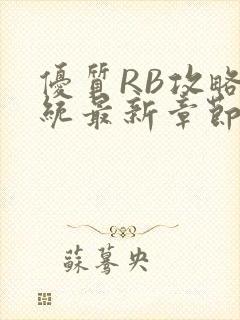 優質RB攻略
統最新章節
蘇驀央